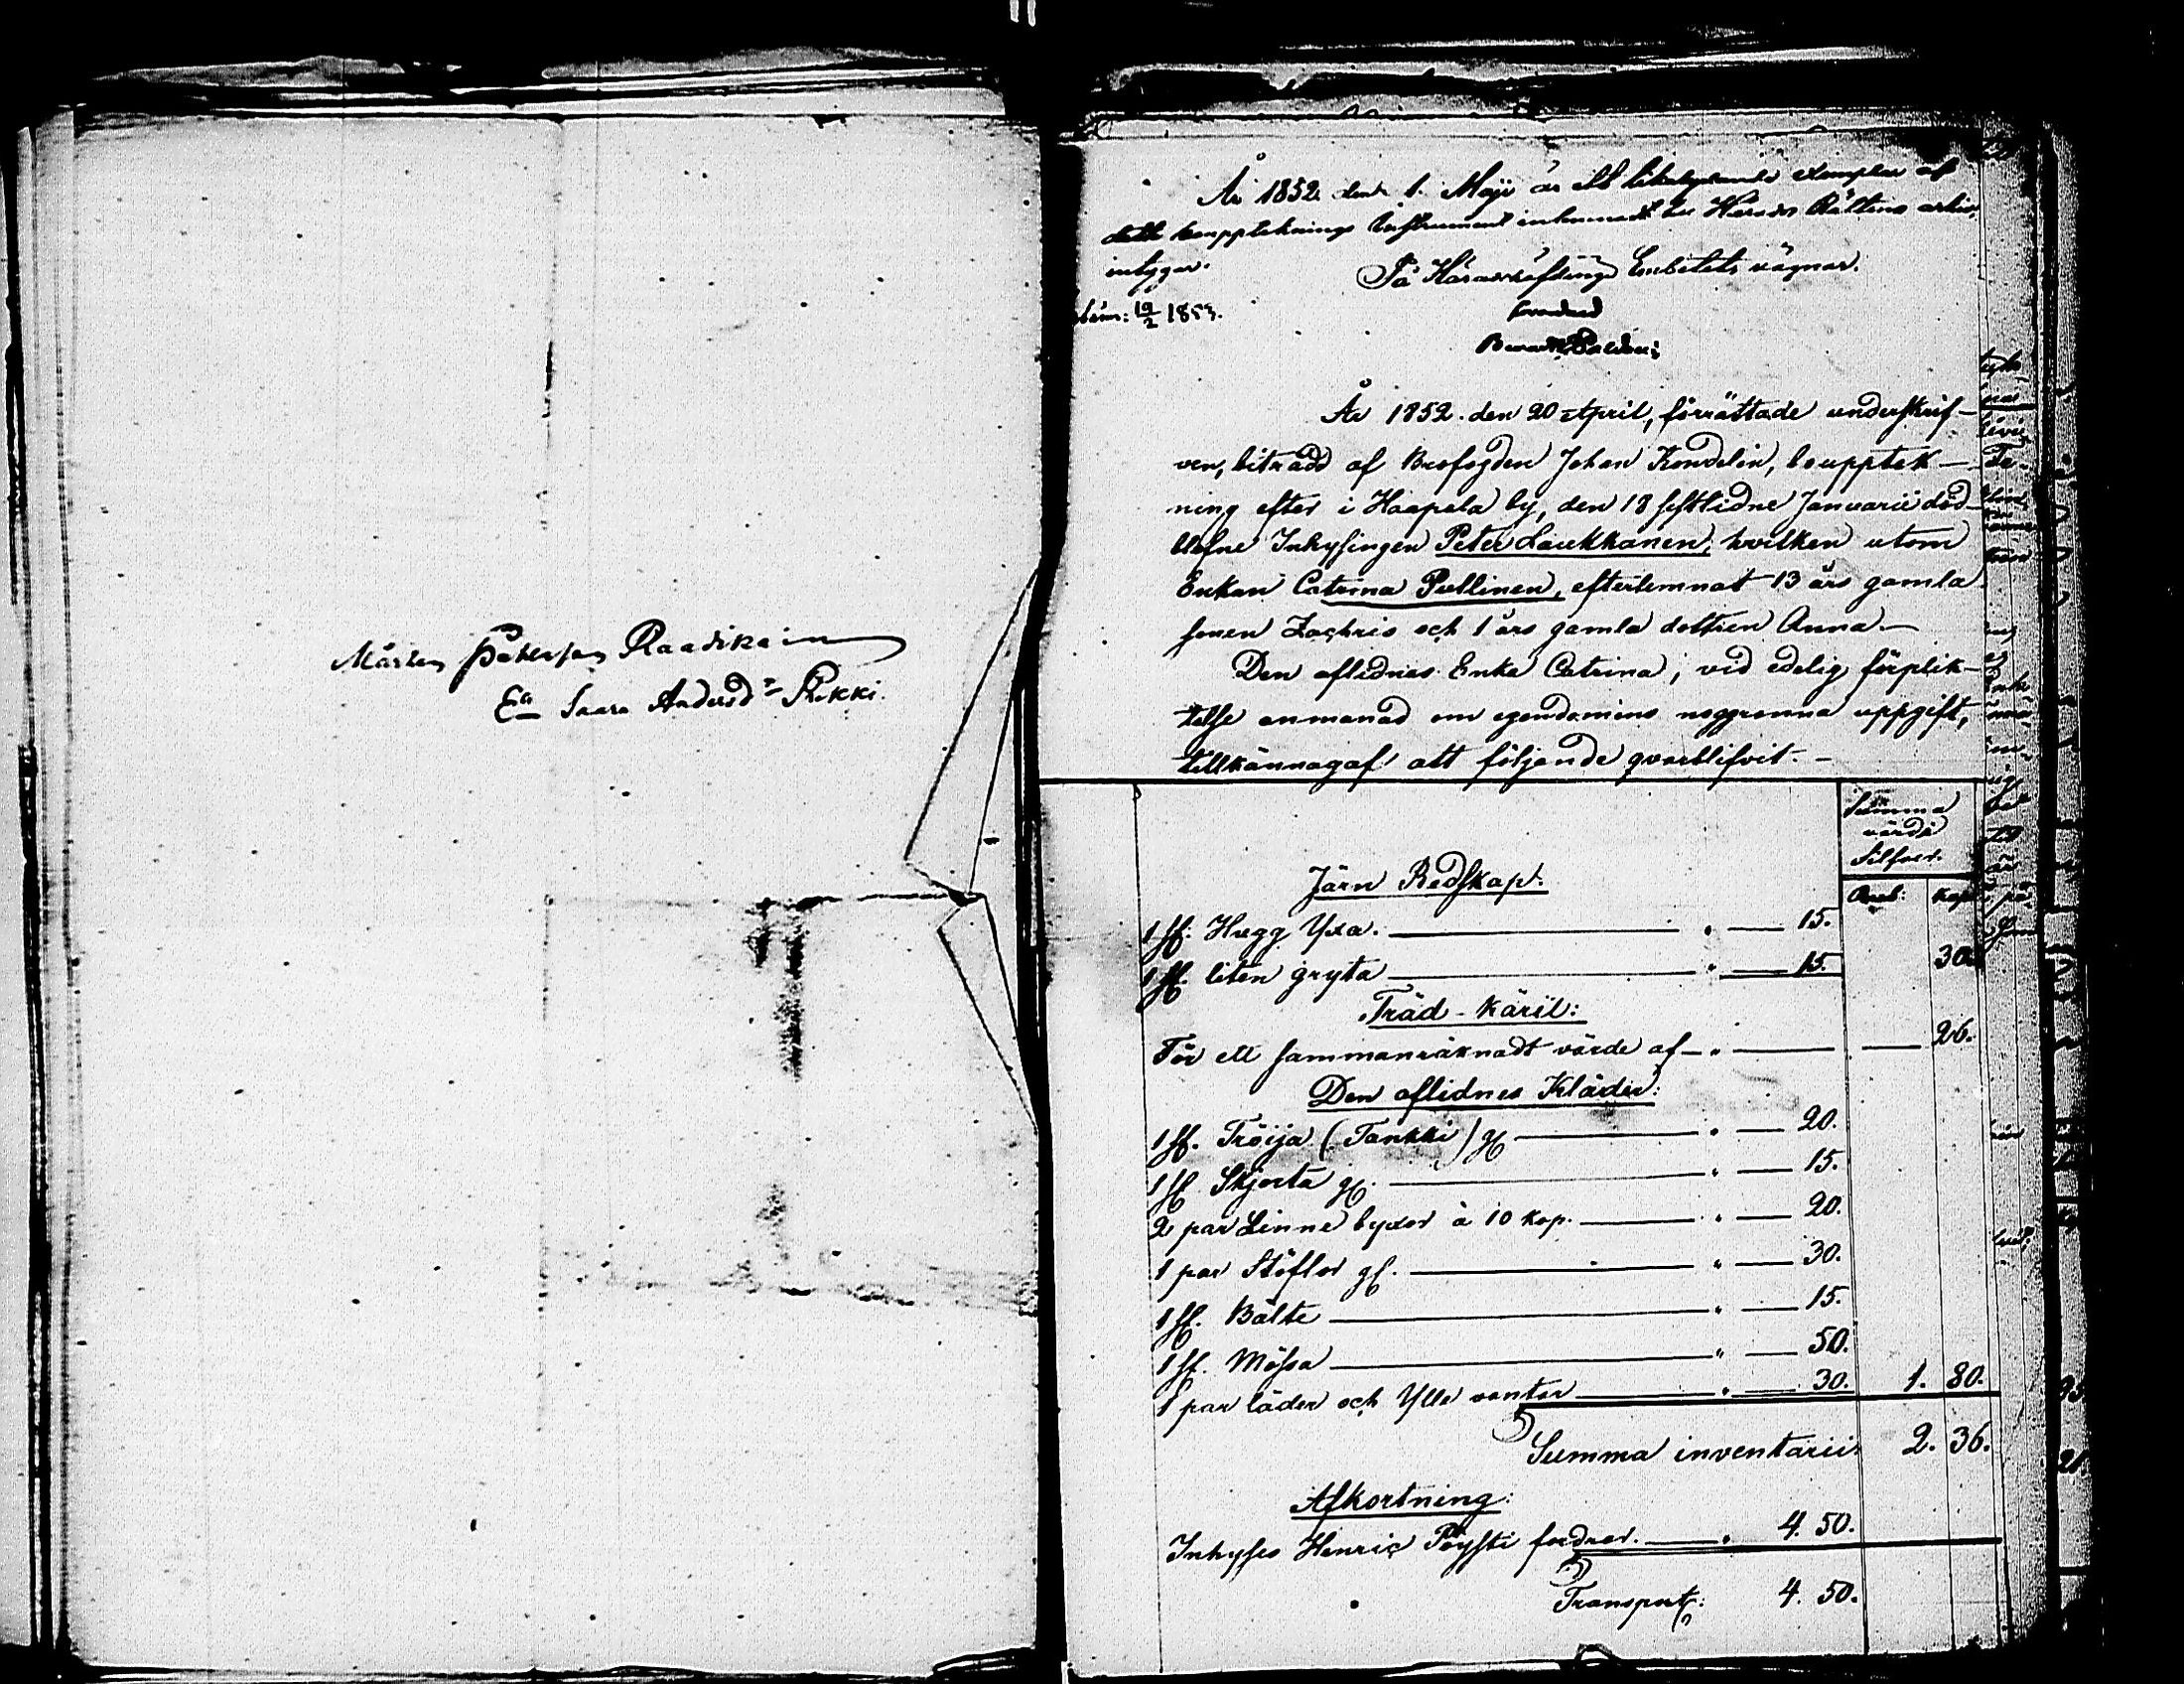 Mårten Petersson Raadikain
Ea Saara Andersdr Pukki.
År 1852 den 1. Maji är ett likalydande exemplar af
detta bouppteknings Instrument inlemnadt till Härads Rättens arkiv,
intygar.
På Häradshöfdinge Embetets vägnar.
19/2 1853.
År 1852. den 20 April, förrättade underskrif-
ven, biträdd af Brofogden Johan Kondelin, bouppteck-
ning efter i Haapela by, den 18 sistlidne Januarii död-
blefne Inhysingen Peter Laukkanen, hvilken utom
Enkan Catrina Pullinen, efterlemnat 13 års gamla
sonen Zachris och 1 års gamla dottren Anna.—
Den aflidnas Enka Catrina, vid edelig förplik-
telse anmanad om egendomens noggranna uppgift,
tillkännagaf att följande qvarblifvit.—
Summa
värde
Silfver.
Järn Redskap.
Rub: Kop
1 st. Hugg Yxa. — " — 15.
1 st. liten gryta — " — 15. 30.
Träd-Käril:
För ett sammanräknadt värde af — " — 26.
Den aflidnes Kläder:
1 st. Tröija (Tankki) gl — " — 20.
1 st. Skjorta gl. — " — 15.
2 par Linne byxor à 10 kop. — " — 20.
1 par Stöflor gl. — " — 30.
1 st. Bälte — " — 15.
1 st. Mössa — " — 50.
1 par läder och Ylle vantar — " — 30. 1. 80.
Summa inventarii. 2. 36.
Afkortning:
Inhyses Henric Pöysti fordrar. — " 4. 50.
Transport: 4. 50.